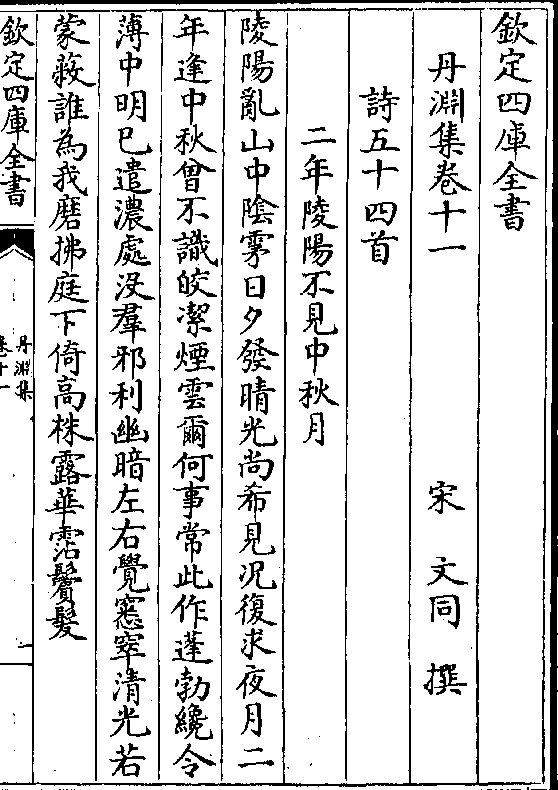 欽定四庫全書
丹淵集卷十一 宋 文同 撰
詩五十四首
二年陵陽不見中秋月
陵陽亂山中陰雺日夕發晴光尚希見况復求夜月二
年逢中秋曾不識皎潔煙雲爾何事常此作蓬勃纔令
薄中明巳遣濃處没羣邪利幽暗左右覺窸窣清光若
蒙蔽誰為我磨拂庭下倚高株露華霑鬢髮
欽定四庫全書
丹淵集
卷十一
一